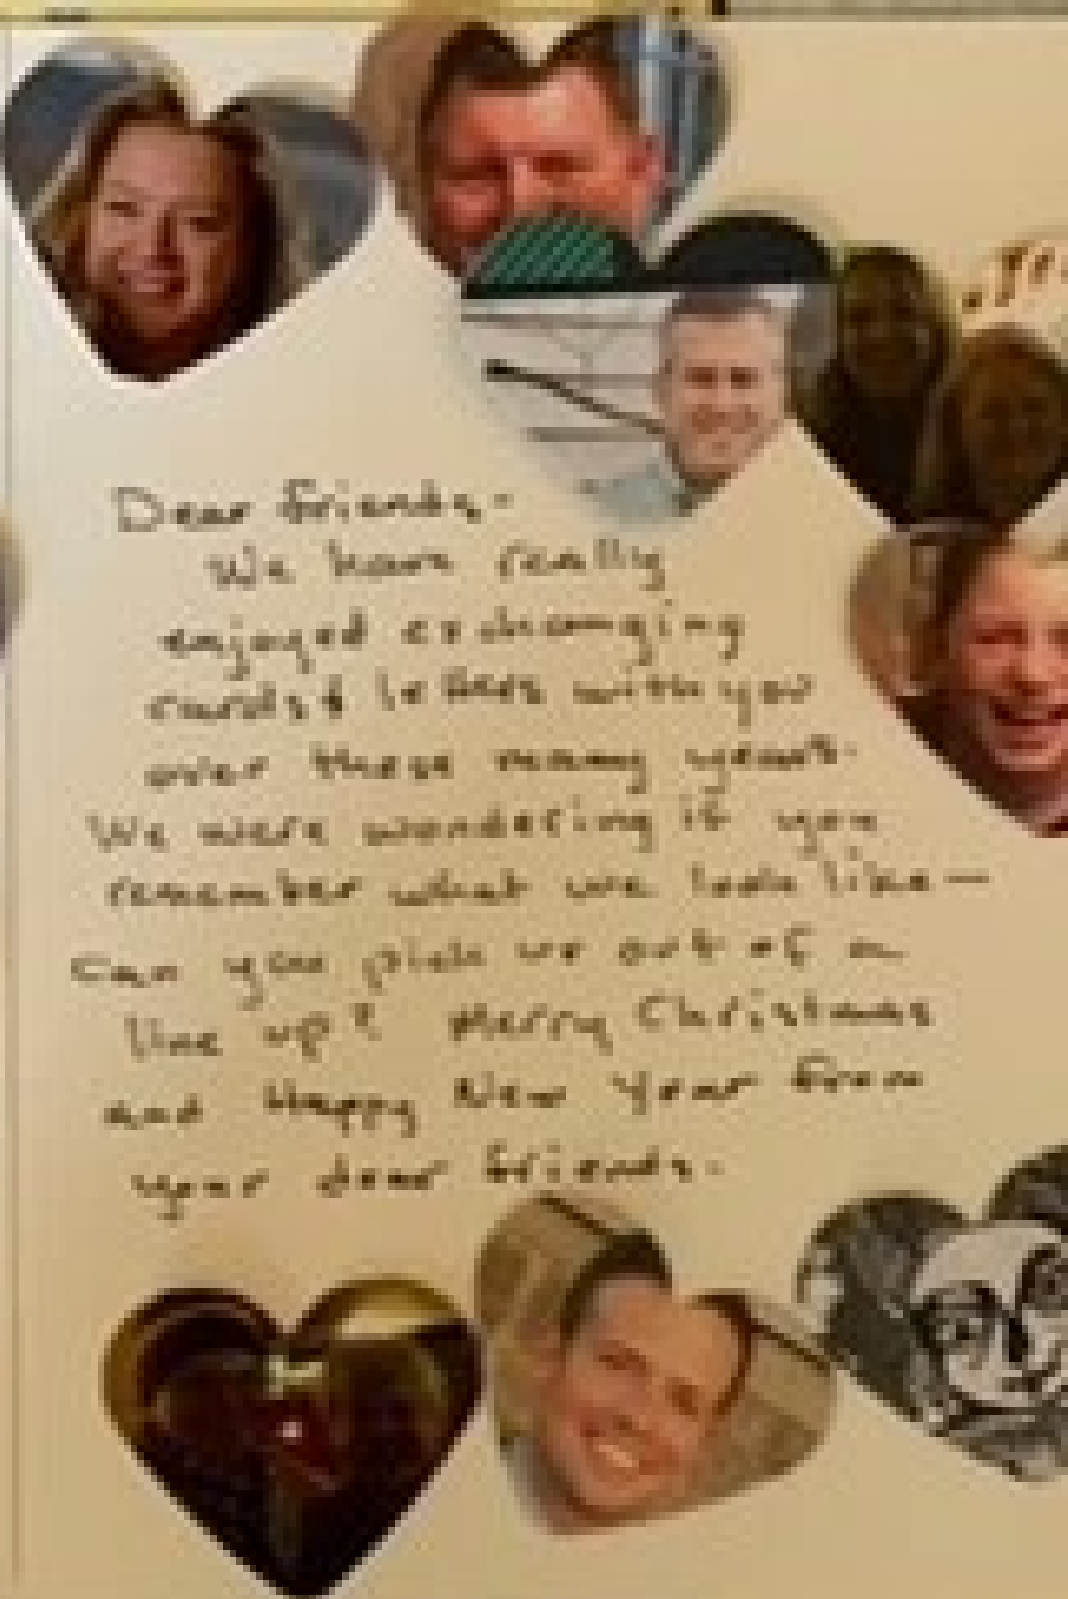 Dear friends-
We have really
enjoyed exchanging
cards & letters with you
over these many years.
We were wondering if you
remember what we look like —
Can you pick us out of a
line up? Merry Christmas
and Happy New Year from
your dear friends.